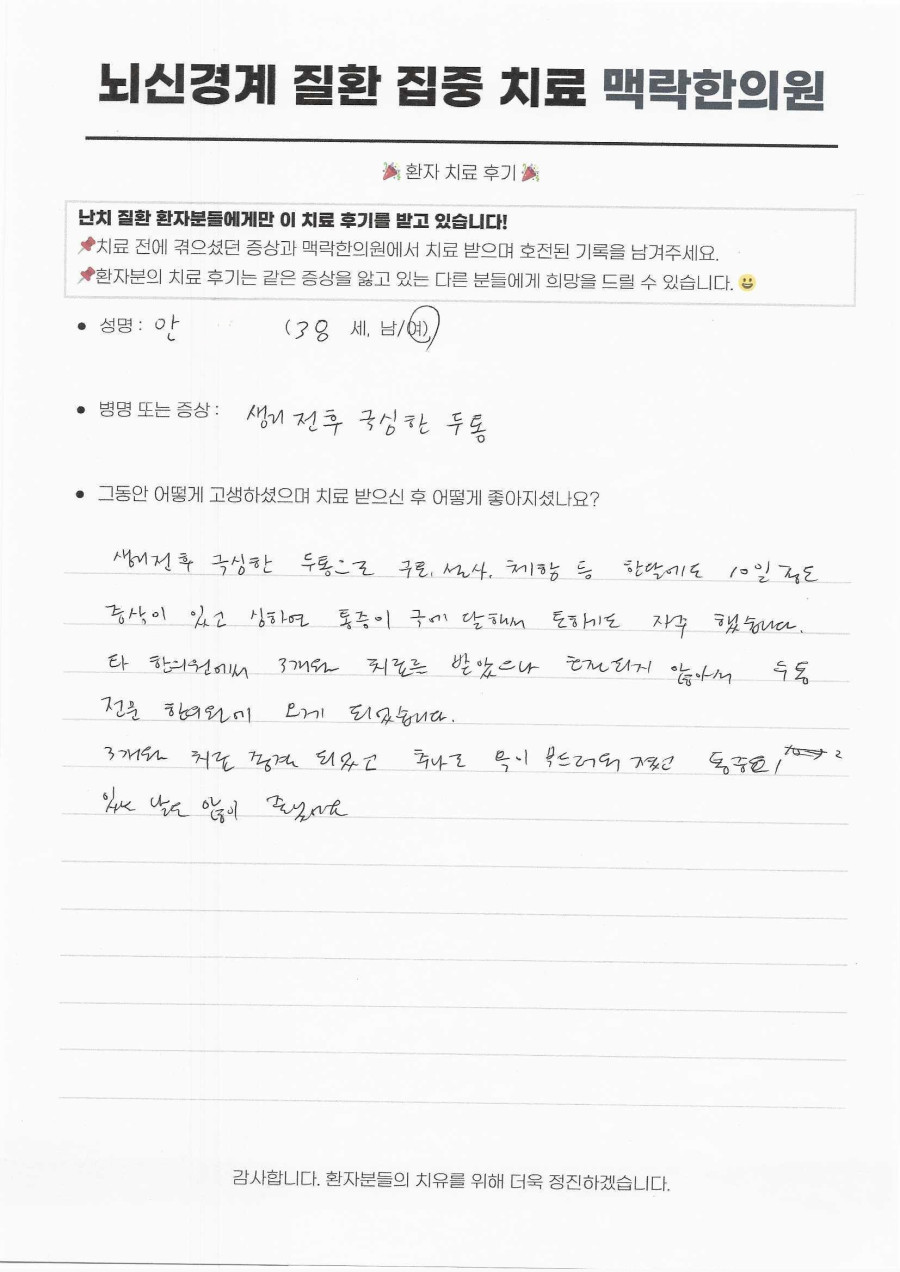 뇌신경계 질환 집중 치료 맥락한의원
🎉환자 치료 후기🎉
난치 질환 환자분들에게만 이 치료 후기를 받고 있습니다!
📌치료 전에 겪으셨던 증상과 맥락한의원에서 치료 받으며 호전된 기록을 남겨주세요.
📌환자분의 치료 후기는 같은 증상을 앓고 있는 다른 분들에게 희망을 드릴 수 있습니다. 😀
• 성명 : 안 (38 세, 남/여)
• 병명 또는 증상 : 생리 전후 극심한 두통
• 그동안 어떻게 고생하셨으며 치료 받으신 후 어떻게 좋아지셨나요?
생리전후 극심한 두통으로 구토, 설사, 체함 등 한달에도 10일 정도
증상이 있고 심하면 통증이 극에 달해서 토하기도 자주 했습니다.
타 한의원에서 3개월 치료를 받았으나 호전되지 않아서 두통
전문 한의원에 오게 되었습니다.
3개월 치료 종결 되었고 추나로 목이 부드러워 졌고 통증
있는 날도 많이 줄었어요
감사합니다. 환자분들의 치유를 위해 더욱 정진하겠습니다.